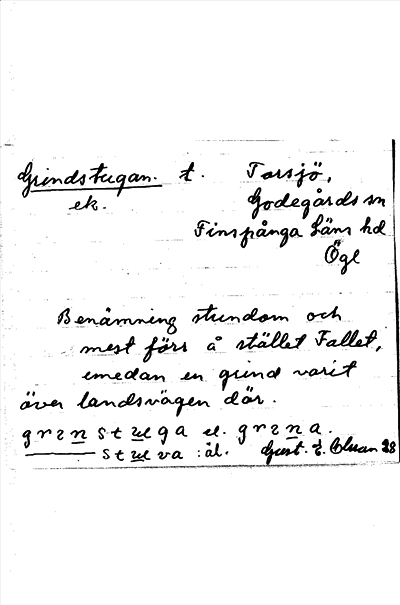 Grindstugan. t. Torsjö,
ek. Godegårds sn
Finspånga läns hd
Ögl
Benämning stundom och
mest förr å stället Fallet,
emedan en grind varit
över landsvägen där.
el.
: ål. Gust. E.
28